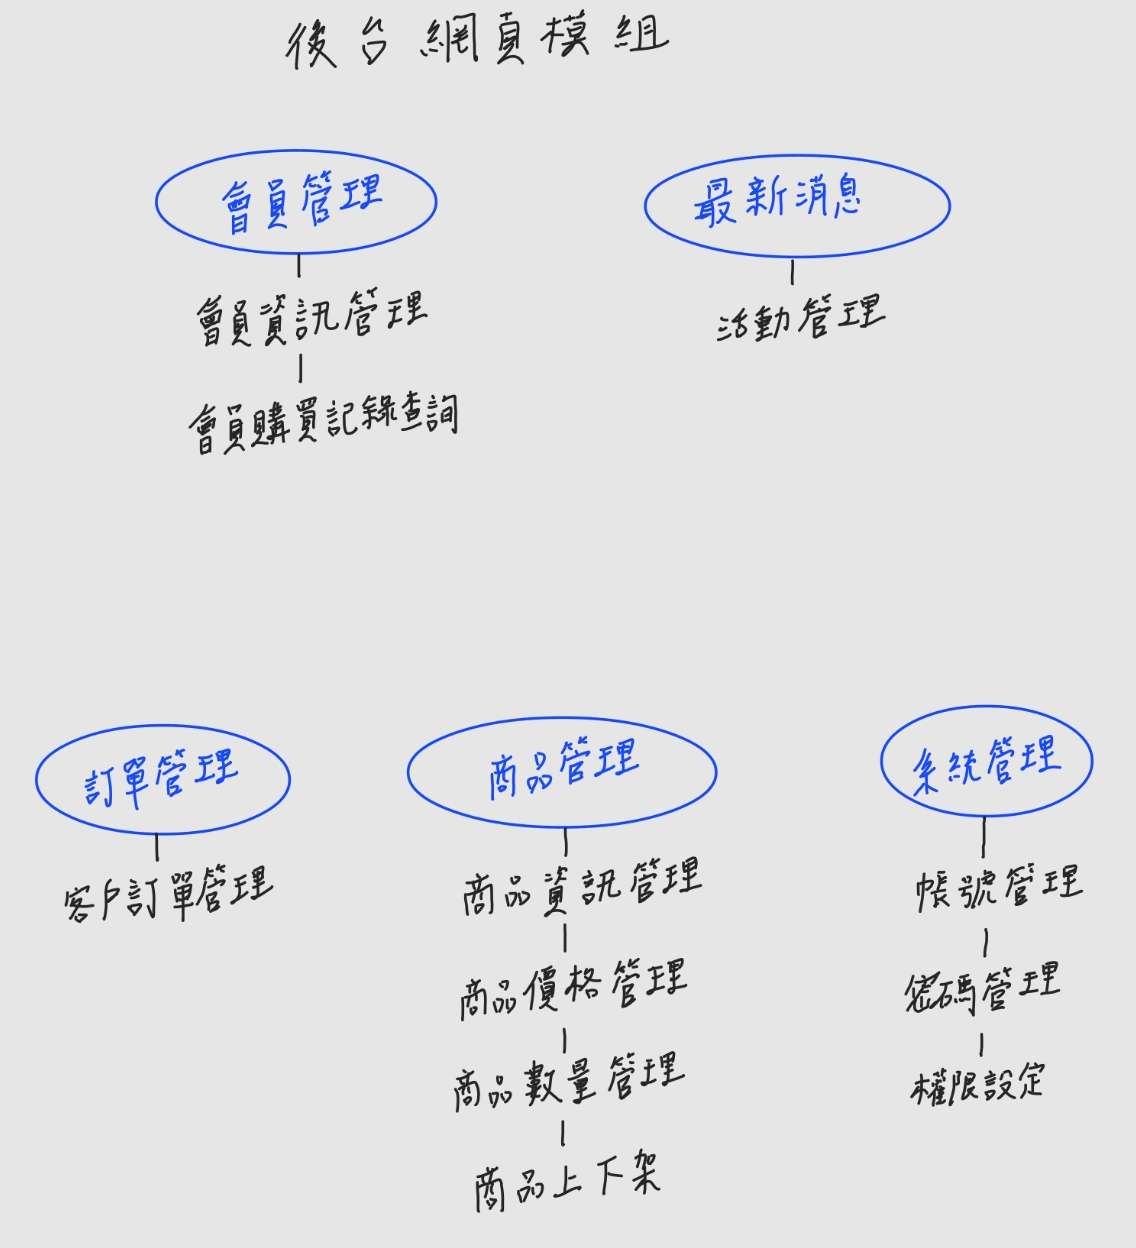 後台網頁模組
會員管理
會員資訊管理
會員購買記錄查詢
最新消息
活動管理
訂單管理
客戶訂單管理
商品管理
商品資訊管理
商品價格管理
商品數量管理
商品上下架
系統管理
帳號管理
密碼管理
權限設定